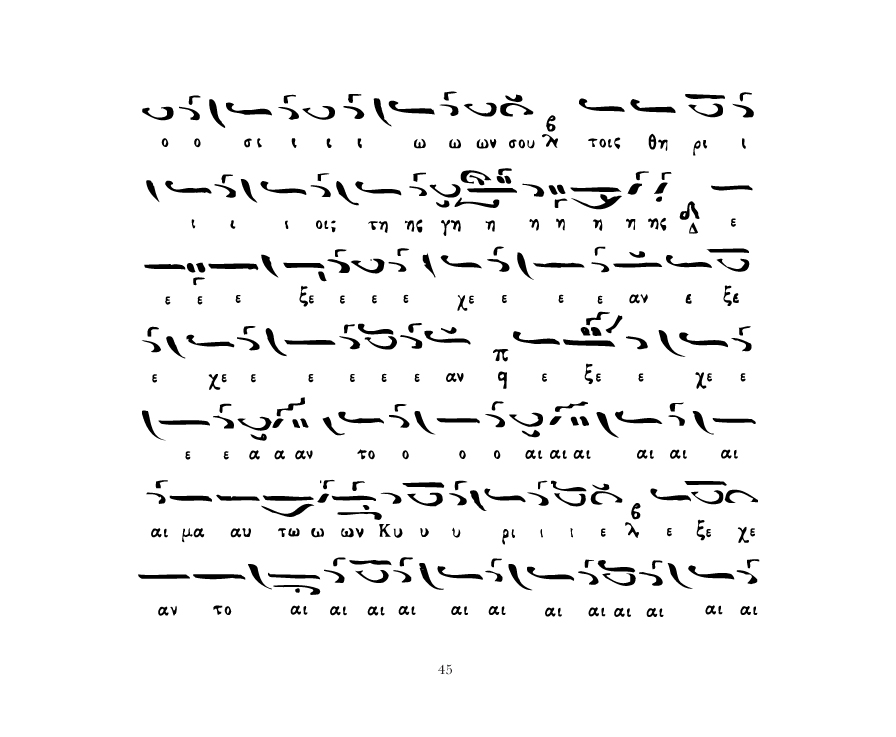 ο ο σι ι ι ι ω ω ων σου λ β τοις θη ρι ι
ι ι ι οις τη ης γη η η η η η ης Δ ε
ε ε ε ξε ε ε ε χε ε ε ε αν ε ξε
ε χε ε ε ε ε ε αν π q ε ξε ε χε ε
ε ε α α αν το ο ο ο αι αι αι αι αι αι
αι μα αυ τω ω ων Κυ υ υ ρι ι ι ε λ β ε ξε χε
αν το αι αι αι αι αι αι αι αι αι αι αι αι
45